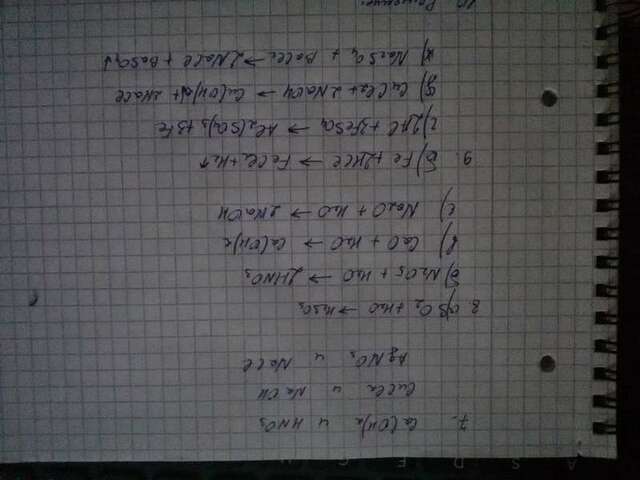 7. Ca(OH)₂ и HNO₃
CuCl₂ и NaOH
AgNO₃ и NaCl
8. а) SO₂ + H₂O → H₂SO₃
б) N₂O₅ + H₂O → 2HNO₃
в) CaO + H₂O → Ca(OH)₂
г) Na₂O + H₂O → 2NaOH
9. б) Fe + 2HCl → FeCl₂ + H₂↑
г) 2Al + 3FeSO₄ → Al₂(SO₄)₃ + 3Fe
д) CuCl₂ + 2NaOH → Cu(OH)₂↓ + 2NaCl
Na₂SO₄ + BaCl₂ → 2NaCl + BaSO₄↓
10.